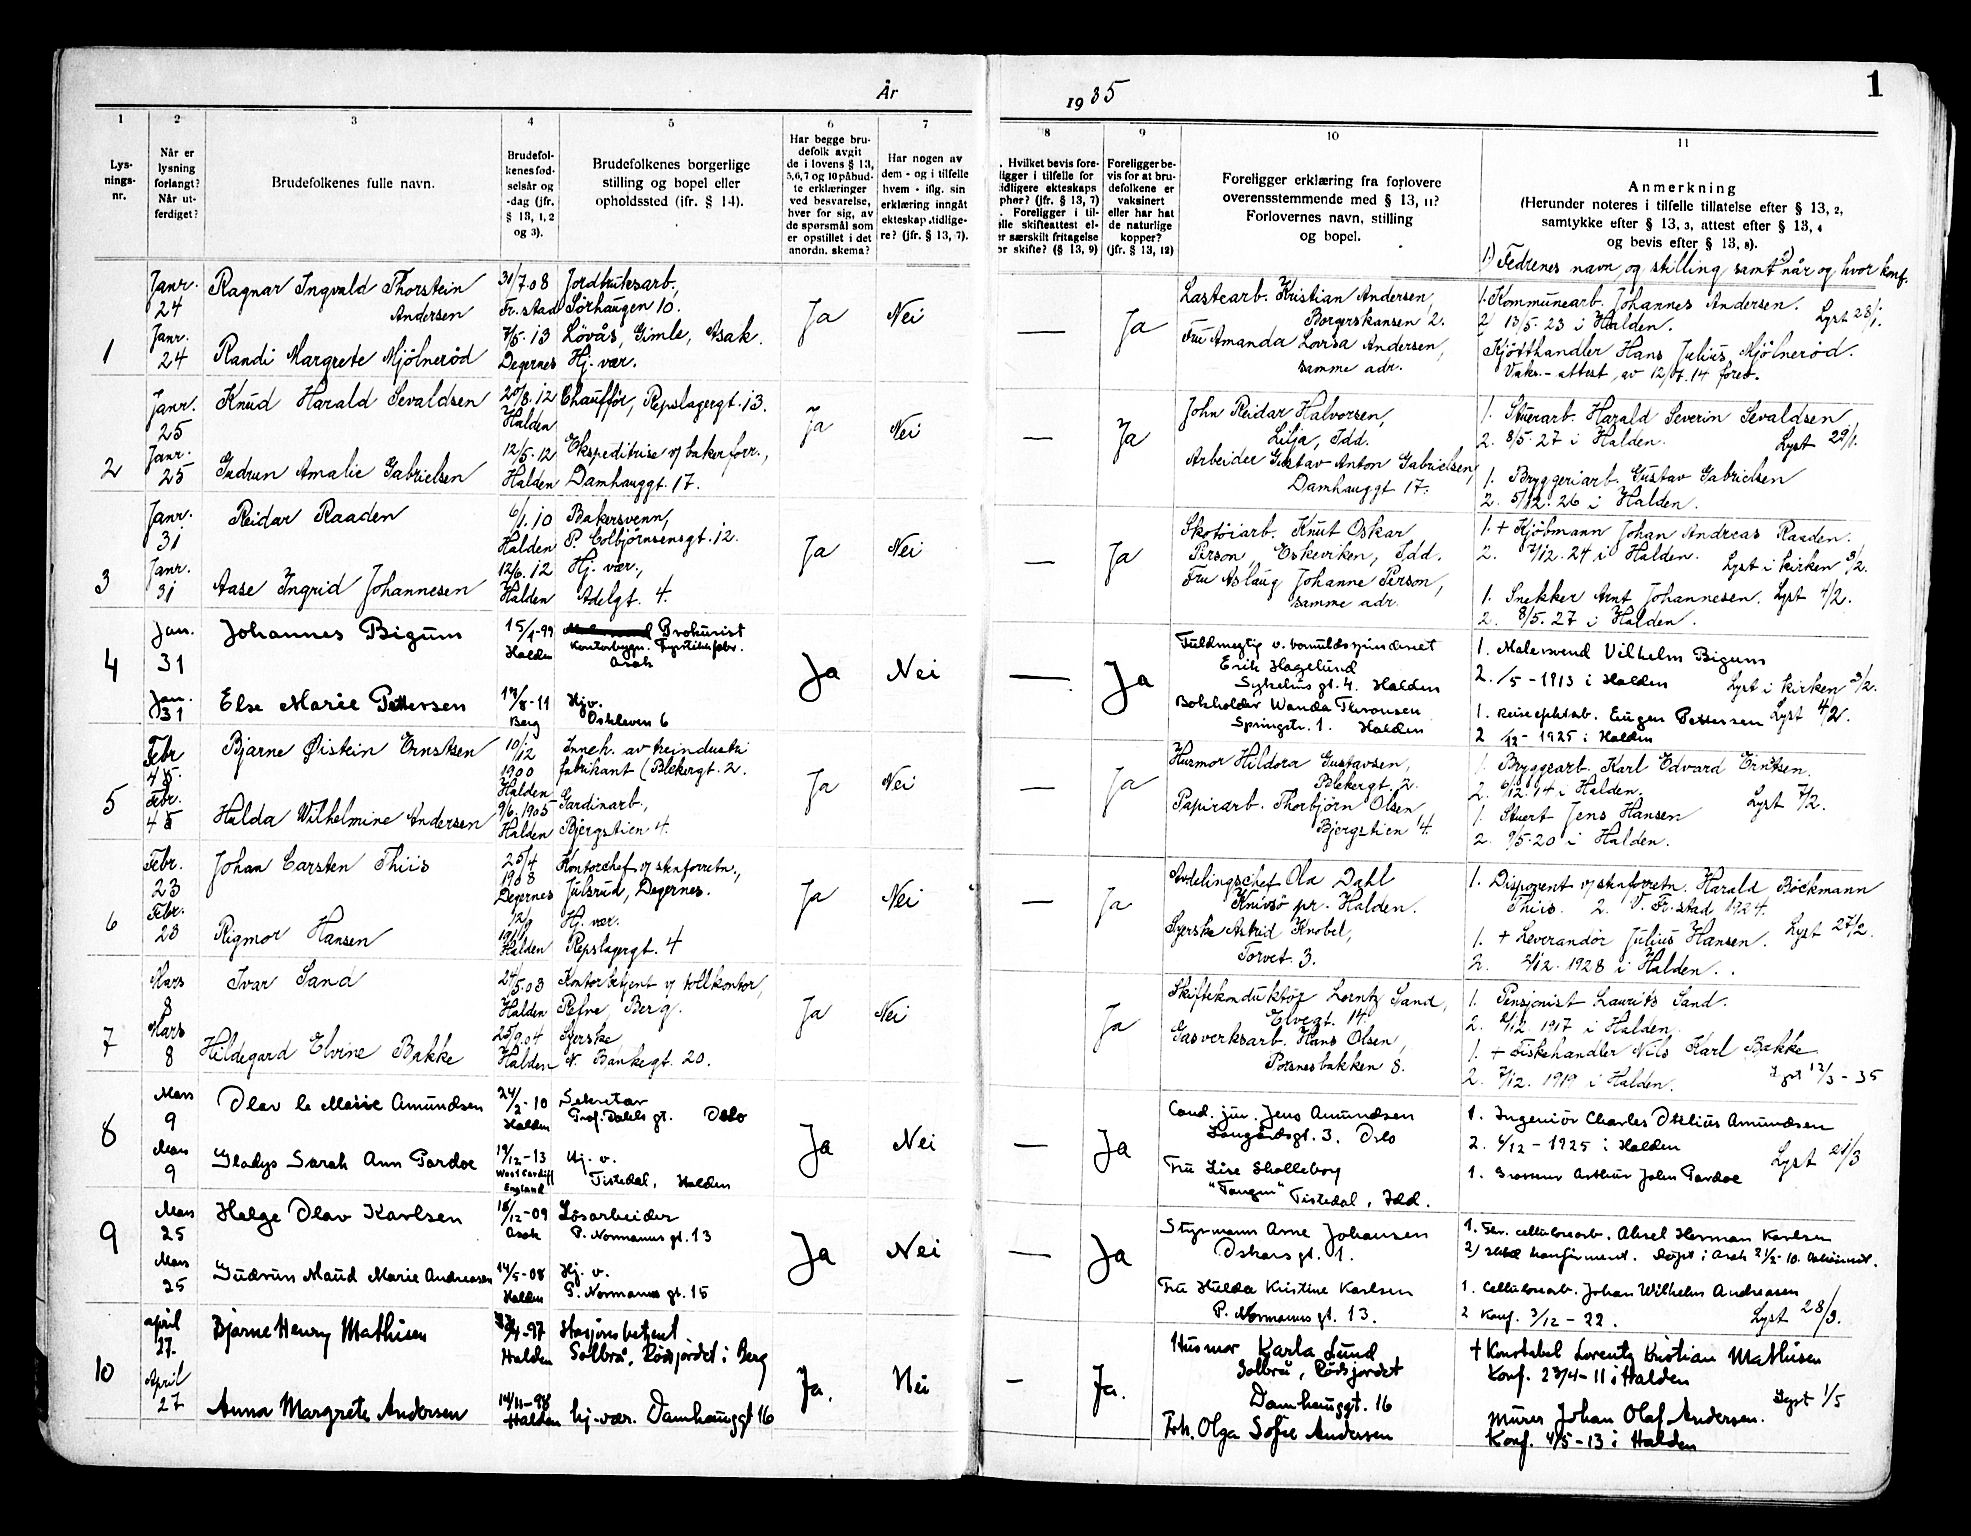 År 1935
1
1
Lys-
nings-
nr.
2
Når er
lysning
forlangt?
Når ut-
ferdiget?
3
Brudefolkenes fulle navn.
4
Brudefol-
kenes fød-
selsår og
-dag (jfr.
§ 13, 1, 2
og 3).
5
Brudefolkenes borgerlige
stilling og bopel eller
opholdssted (jfr. § 14).
6
Har begge bru-
defolk avgit
de i lovens § 13,
5, 6, 7 og 10 påbud-
te erklæringer
ved besvarelse,
hver for sig, av
de spørsmål som
er opstillet i det
anordn. skema?
7
Har nogen av
dem - og i tilfelle
hvem - iflg. sin
erklæring inngåt
ekteskap tidlige-
re? (jfr. § 13, 7).
8
. Hvilket bevis fore-
ligger i tilfelle for
tidligere ekteskaps
ophør? (jfr. § 13, 7)
. Foreligger i til-
elle skifteattest el-
er særskilt fritagelse
or skifte? (§ 13, 9)
9
Foreligger be-
vis for at bru-
defolkene er
vaksinert
eller har hat
de naturlige
kopper?
(jfr. § 13, 12)
10
Foreligger erklæring fra forlovere
overensstemmende med § 13, 11?
Forlovernes navn, stilling
og bopel.
11
Anmerkning
(Herunder noteres i tilfelle tillatelse efter § 13, 2,
samtykke efter § 13, 3, attest efter § 13, 4
og bevis efter § 13, 8).
1) Fedrenes navn og stilling samt 2) når og hvor konf.
1
Janr.
24
Ragnar Ingvald Thorstein
Andersen
31/7.08
Fr.stad
Jordbuksarb.,
Sørhaugen 10.
Janr.
24
Randi Margrete Mjölneröd
7/5.13
Degernes
Lövås, Gimle, Asak.
Hj. vær.
Ja
Nei
—
Ja
Lastearb. Kristian Andersen,
Borgerskansen 2.
Fru Amanda Lovisa Andersen,
samme adr.
1. Kommunearb. Johannes Andersen.
2 13/5.23 i Halden. Lyst 28/1.
Kjøtthandler Hans Julius Mjölneröd.
Vaks.-attest av 12/7.14 forev.
2
Janr.
25
Knud Harald Sevaldsen
20/8.12
Halden
Chaufför, Repslagergt. 13.
Janr.
25
Gudrun Amalie Gabrielsen
12/5.12
Halden
Ekspeditrise v/ bakerforr.,
Damhauggt. 17.
Ja
Nei
—
Ja
John Reidar Halvorsen,
Lilja, Idd.
Arbeider Gustav Anton Gabrielsen,
Damhauggt 17.
1. Stuerarb. Harald Severin Sevaldsen
2. 8/5.27 i Halden. Lyst 29/1.
1. Bryggeriarb. Gustav Gabrielsen
2. 5/12.26 i Halden.
3
Janr.
31
Reidar Raaden
6/1.10
Halden
Bakersvenn,
P. Colbjörnsensgt. 12.
Janr.
31
Aase Ingrid Johannesen
12/6.12
Halden
Hj. vær.,
Adelgt. 4.
Ja
Nei
—
Ja
Skotöiarb. Knut Oskar
Person, Eskeviken, Idd.
Fru Aslaug Johanne Person,
samme adr.
1. + Kjöbmann Johan Andreas Raaden.
2. 7/12.24 i Halden. Lyst i kirken 3/2.
1. Snekker Arnt Johannesen. Lyst 4/2.
2. 8/5.27 i Halden.
4
Jan.
31
Johannes Bigum
15/4-99
Halden
Prokurist
Asak
Jan.
31
Else Marie Pettersen
17/8-11
Berg
Hjv.
Oskleven 6
Ja
Nei
—
Ja
Fuldmegtig v. bomuldsspinderiet
Erik Hagelund
gt. 4. Halden
Bokholder Wanda Thronsen
Springstr. 1. Halden
1. Malersvend Vilhelm Bigum
2. /5-1913 i Halden Lyst i kirken 3/2.
1. Eugen Pettersen Lyst 4/2.
2 /12-1925 i Halden
5
Febr
4
Bjarne Øistein Ernstsen
10/12
1900
Halden
Inneh. av treindustri
fabrikant (Blekergt. 2.
Febr.
4
Halda Wilhelmine Andersen
9/6.1905
Halden
Gardinarb.,
Bjergstien 4.
Ja
Nei
—
Ja
Husmor Hildora Gustavsen,
Blekergt. 2.
Papirarb. Thorbjörn Olsen,
Bjergstien 4.
1. Bryggearb. Karl Edvard Erntsen.
2. 6/12.14 i Halden. Lyst 7/2.
1. Stuert Jens Hansen
2. 9/5-20 i Halden.
6
Febr.
23
Johan Carsten Thiis
25/4
1908
Degernes
Kontorchef v/ stenforretn.,
Julsrud, Degernes.
Febr.
23
Rigmor Hansen
12/9
1911
Halden
Hj. vær.
Repslagergt. 4
Ja
Nei
—
Ja
Avdelingschef Ola Dahl
Knivsö pr. Halden.
Syerske Astrid Knobel,
Torvet 3.
1. Disponent v/ stenforretn. Harald Böckmann
Thiis. 2. V. Fr.stad 1924.
1. + Leverandör Julius Hansen. Lyst 27/2.
2. 2/12.1928 i Halden.
7
Mars
8
Ivar Sand
24/5.03
Halden
Kontorbetjent v/ tollkontor,
Refne, Berg.
Mars
8
Hildegard Elvine Bakke
25/9.04
Halden
Syerske,
N. Bankegt. 20.
Ja
Nei
Ja
Skiftekonduktör Lorntz Sand,
Elvegt. 14.
Gasverksarb. Hans Olsen,
Porsnesbakken 8.
1. Pensjonist Laurits Sand.
2. 2/12.1917 i Halden.
1. + Fiskehandler Nils Karl Bakke
2. 7/12.1919 i Halden. Lyst 12/3-35
8
Mars
9
Olav le Maire Amundsen
24/2-10
Halden
Sekretær
Prof. Dahls gt. Oslo
Mars
9
Gladys Sarah Ann Pardoe
19/12-13
West Cardiff
England
Hj. v.
Tistedal, Halden
Ja
Nei
—
Ja
Cand. jur. Jens Amundsen
Langårdsgt. 3. Oslo
Fru Lise Skolleborg
"Tangen" Tistedal, Idd.
1. Ingeniör Charles Otelius Amundsen
2. 6/12-1925 i Halden
Lyst 21/3
1. Arthur John Pardoe
9
Mars
25
Helge Olav Karlsen
18/12-09
Asak
Lösarbeider
P. Normanns gt. 13
Mars
25
Gudrun Maud Marie Andreasen
14/5-08
Halden
Hj. v.
P. Normanns gt. 15
Ja
Nei
—
Ja
Styrmann Arne Johansen
Oskars gt. 1.
Fru Hulda Kristine Karlsen
P. Normanns gt. 13.
1. Aksel Herman Karlsen
2) konfirmert. i Asak
1. Cellulosearb. Johan Wilhelm Andreasen
2 Konf. 3/12-22. Lyst 28/3.
10
april
27.
Bjarne Henry Mathisen
/4-97
Halden
Stasjonsbetjent
Solbru, Rödsjordet i Berg
April
27
Anna Margrete Andersen
14/11-98
Halden
hj-vær. Damhauggt 16
Ja.
Nei
—
Ja.
Husmor Karla Lund
Solbru, Rödsjordet
Damhauggt. 16
Frk. Olga Sofie Andersen
+ Konstabel Lorentz Kristian Mathisen
Konf. 23/4-11 i Halden
Lyst 1/5
Murer Johan Olaf Andersen.
Konf. 4/5-13 i Halden